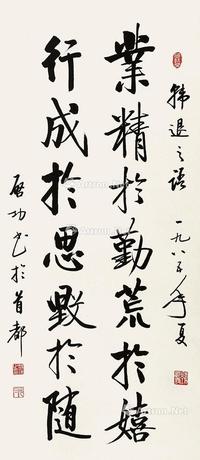 韩退之語 一九八 年夏
業精於勤荒於嬉
行成於思毁於随
启功书於首都